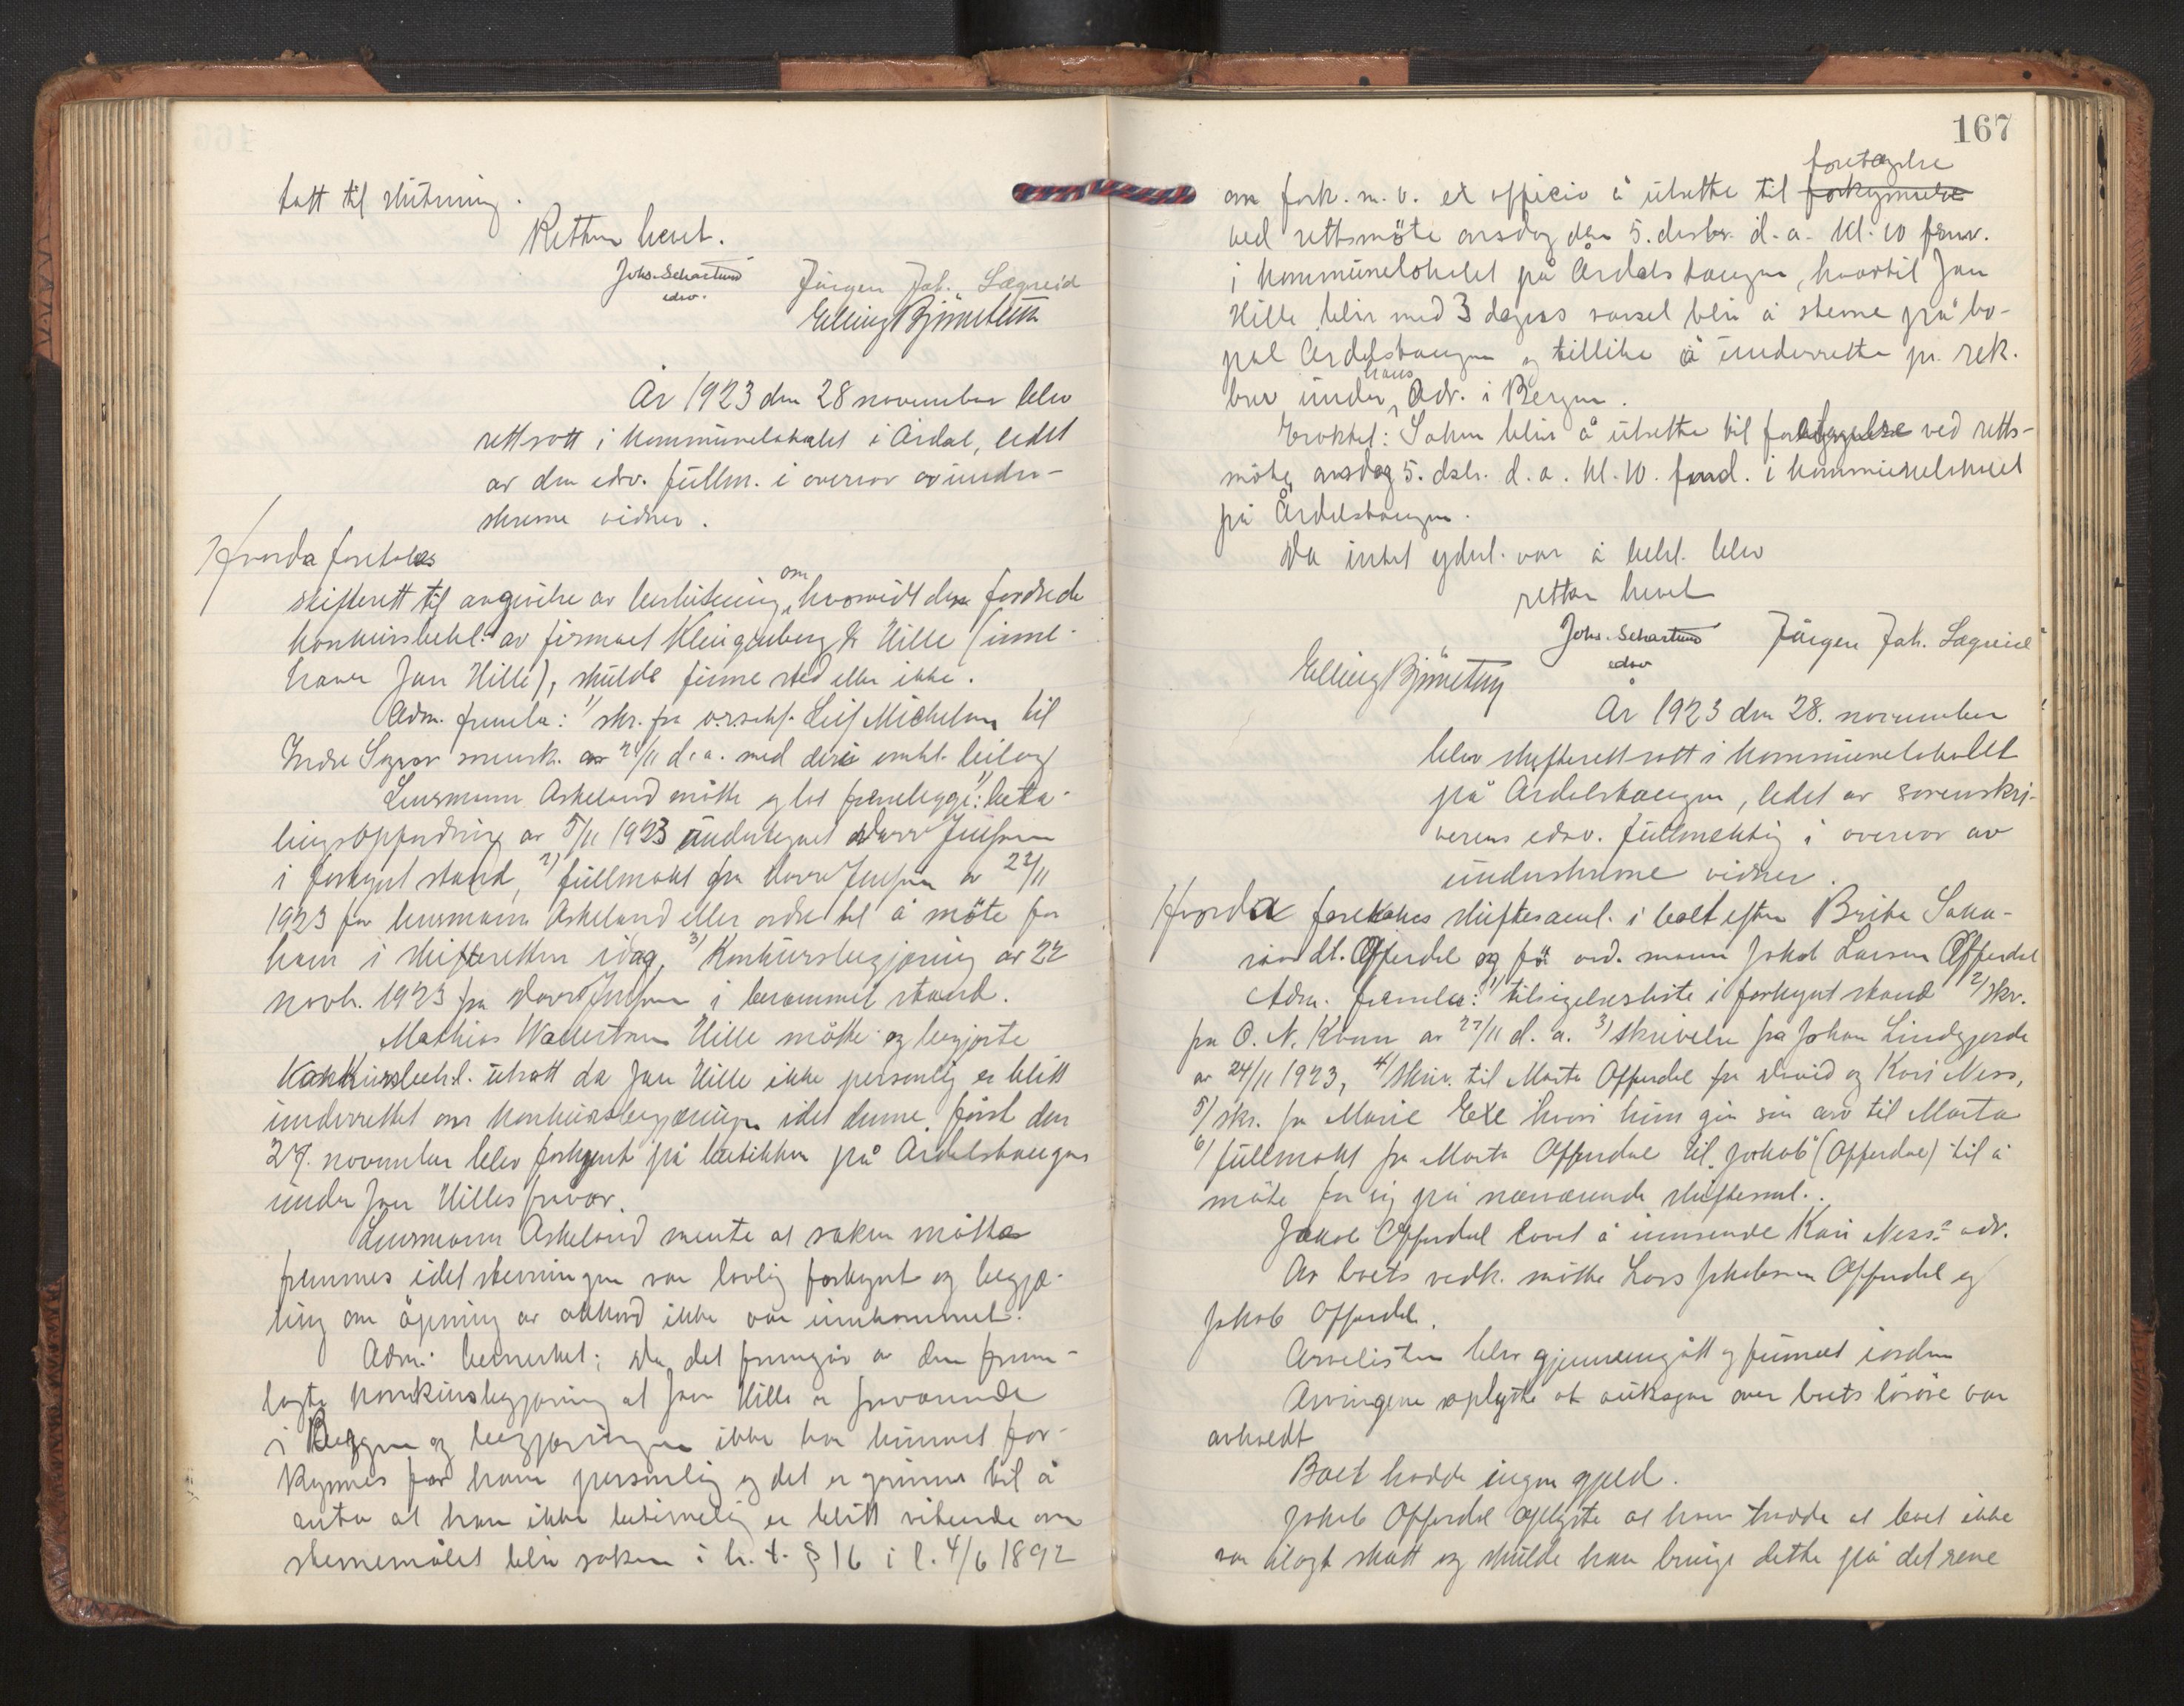 tatt til slutning.
Retten hevet.
Johs. Schartum
edsv.
Jörgen Jak. Lægreid
Elling Bjönstein
År 1923 den 28 november blev
rettsatt i kommunelokalet i Årdal, ledet
av den edsv. fullm. i overvær av under-
skrevne vidner.
Hvorda foretokes
skifterett til avgivelse av beslutning om hvorvidt den fordrede
konkursbehl. av firmaet Klingenberg & Hille (inne-
haver Jan Hille), skulde finne sted eller ikke.
Adm. fremla: 1) skr. fra o.r.sakf. Leif Michelsen til
Indre Sogns sorensk. av 24/11 d.a. med deri omhl. bilag
Lensmann Askeland mötte og lot fremlegge: 1) beta-
lingsopfordring av 5/11 1923 undertegnet
i forkynt stand, 2) fullmakt fra av 22/11
1923 for lensmann Askeland eller ordre til å möte for
ham i skifteretten idag, 3) Konkursbegjæring av 22
novb. 1923 fra i berammet stand.
Mathias Hille mötte og begjærte
Konkursbehl. utsatt da Jan Hille ikke personlig er blitt
underrettet om konkursbegjæringen idet denne först den
27. november blev forkynt på butikken på Årdalstangen
under Jan Hilles fravær.
Lensmann Askeland mente at saken måtte
fremmes idet stevningen var lovlig forkynt og begjæ-
ring om åpning av akkord ikke var innkommet.
Adm. bemerket: Da det fremgår av den frem-
lagte konkursbegjæring at Jan Hille er fraværende
i Bergen og begjæringen ikke har kunnet for-
kynnes for ham personlig og det er grunn til å
anta at han ikke betimelig er blitt vitende om
stevnemålet blir saken i h. t. § 16 i l. 4/6 1892
167
om fork. m. v. ex officio å utsette til forkynnelse foretagelse
ved rettsmöte onsdag den 5. desbr. d.a. kl. 10 form.
i kommunelokalet på Årdalstangen, hvortil Jan
Hille blir med 3 dagers varsel blir å stevne på bo-
pæl Årdalstangen og tillike å underrette pr. rek.
brev under hans Adr. i Bergen.
Eroktet: Saken blir å utsette til foretagelse ved retts-
möte onsdag 5. desb. d.a. kl. 10. form. i kommunelokalet
på Årdalstangen.
Da intet yderl. var å behl. blev
retten hevet
Johs. Schartum
edsv
Jörgen Jak. Lægreid
Elling Bjönstein
År 1923 den 28. november
blev skifterett satt i kommunelokalet
på Årdalstangen, ledet av sorenskri-
verens edsv. fullmektig i overvær av
underskrevne vidner.
Hvorda foretokes skiftesaml. i boet efter Brita
Offerdal og för avd. mann Jakob Larsen Offerdal
Adm. fremla: 1) tilsigelsesliste i forkynt stand 2) skr.
fra O. N. Kvam av 27/11 d.a. 3) skrivelse fra Johan Lindegjerde
av 24/11 1923, 4) skriv. til Marta Offerdal fra David og Kari Ness,
5) skr. fra Marie Exe hvori hun gir sin arv til Marta
6) fullmakt fra Marta Offerdal til "Jakob" (Offerdal) til å
möte for sig på nærværende skiftesaml.
Jakob Offerdal lovet å innsende Kari Ness' adr.
Av boets vedk. mötte Lars Jakobsen Offerdal og
Jakob Offerdal.
Arvelisten blev gjennemgått og funnet iorden
Arvingene oplyste at auksjon over boets lösöre var
avholdt
Boet hadde ingen gjeld.
Jakob Offerdal oplyste at han trodde at boet ikke
var ilagt skatt og skulde han bringe dette på det rene